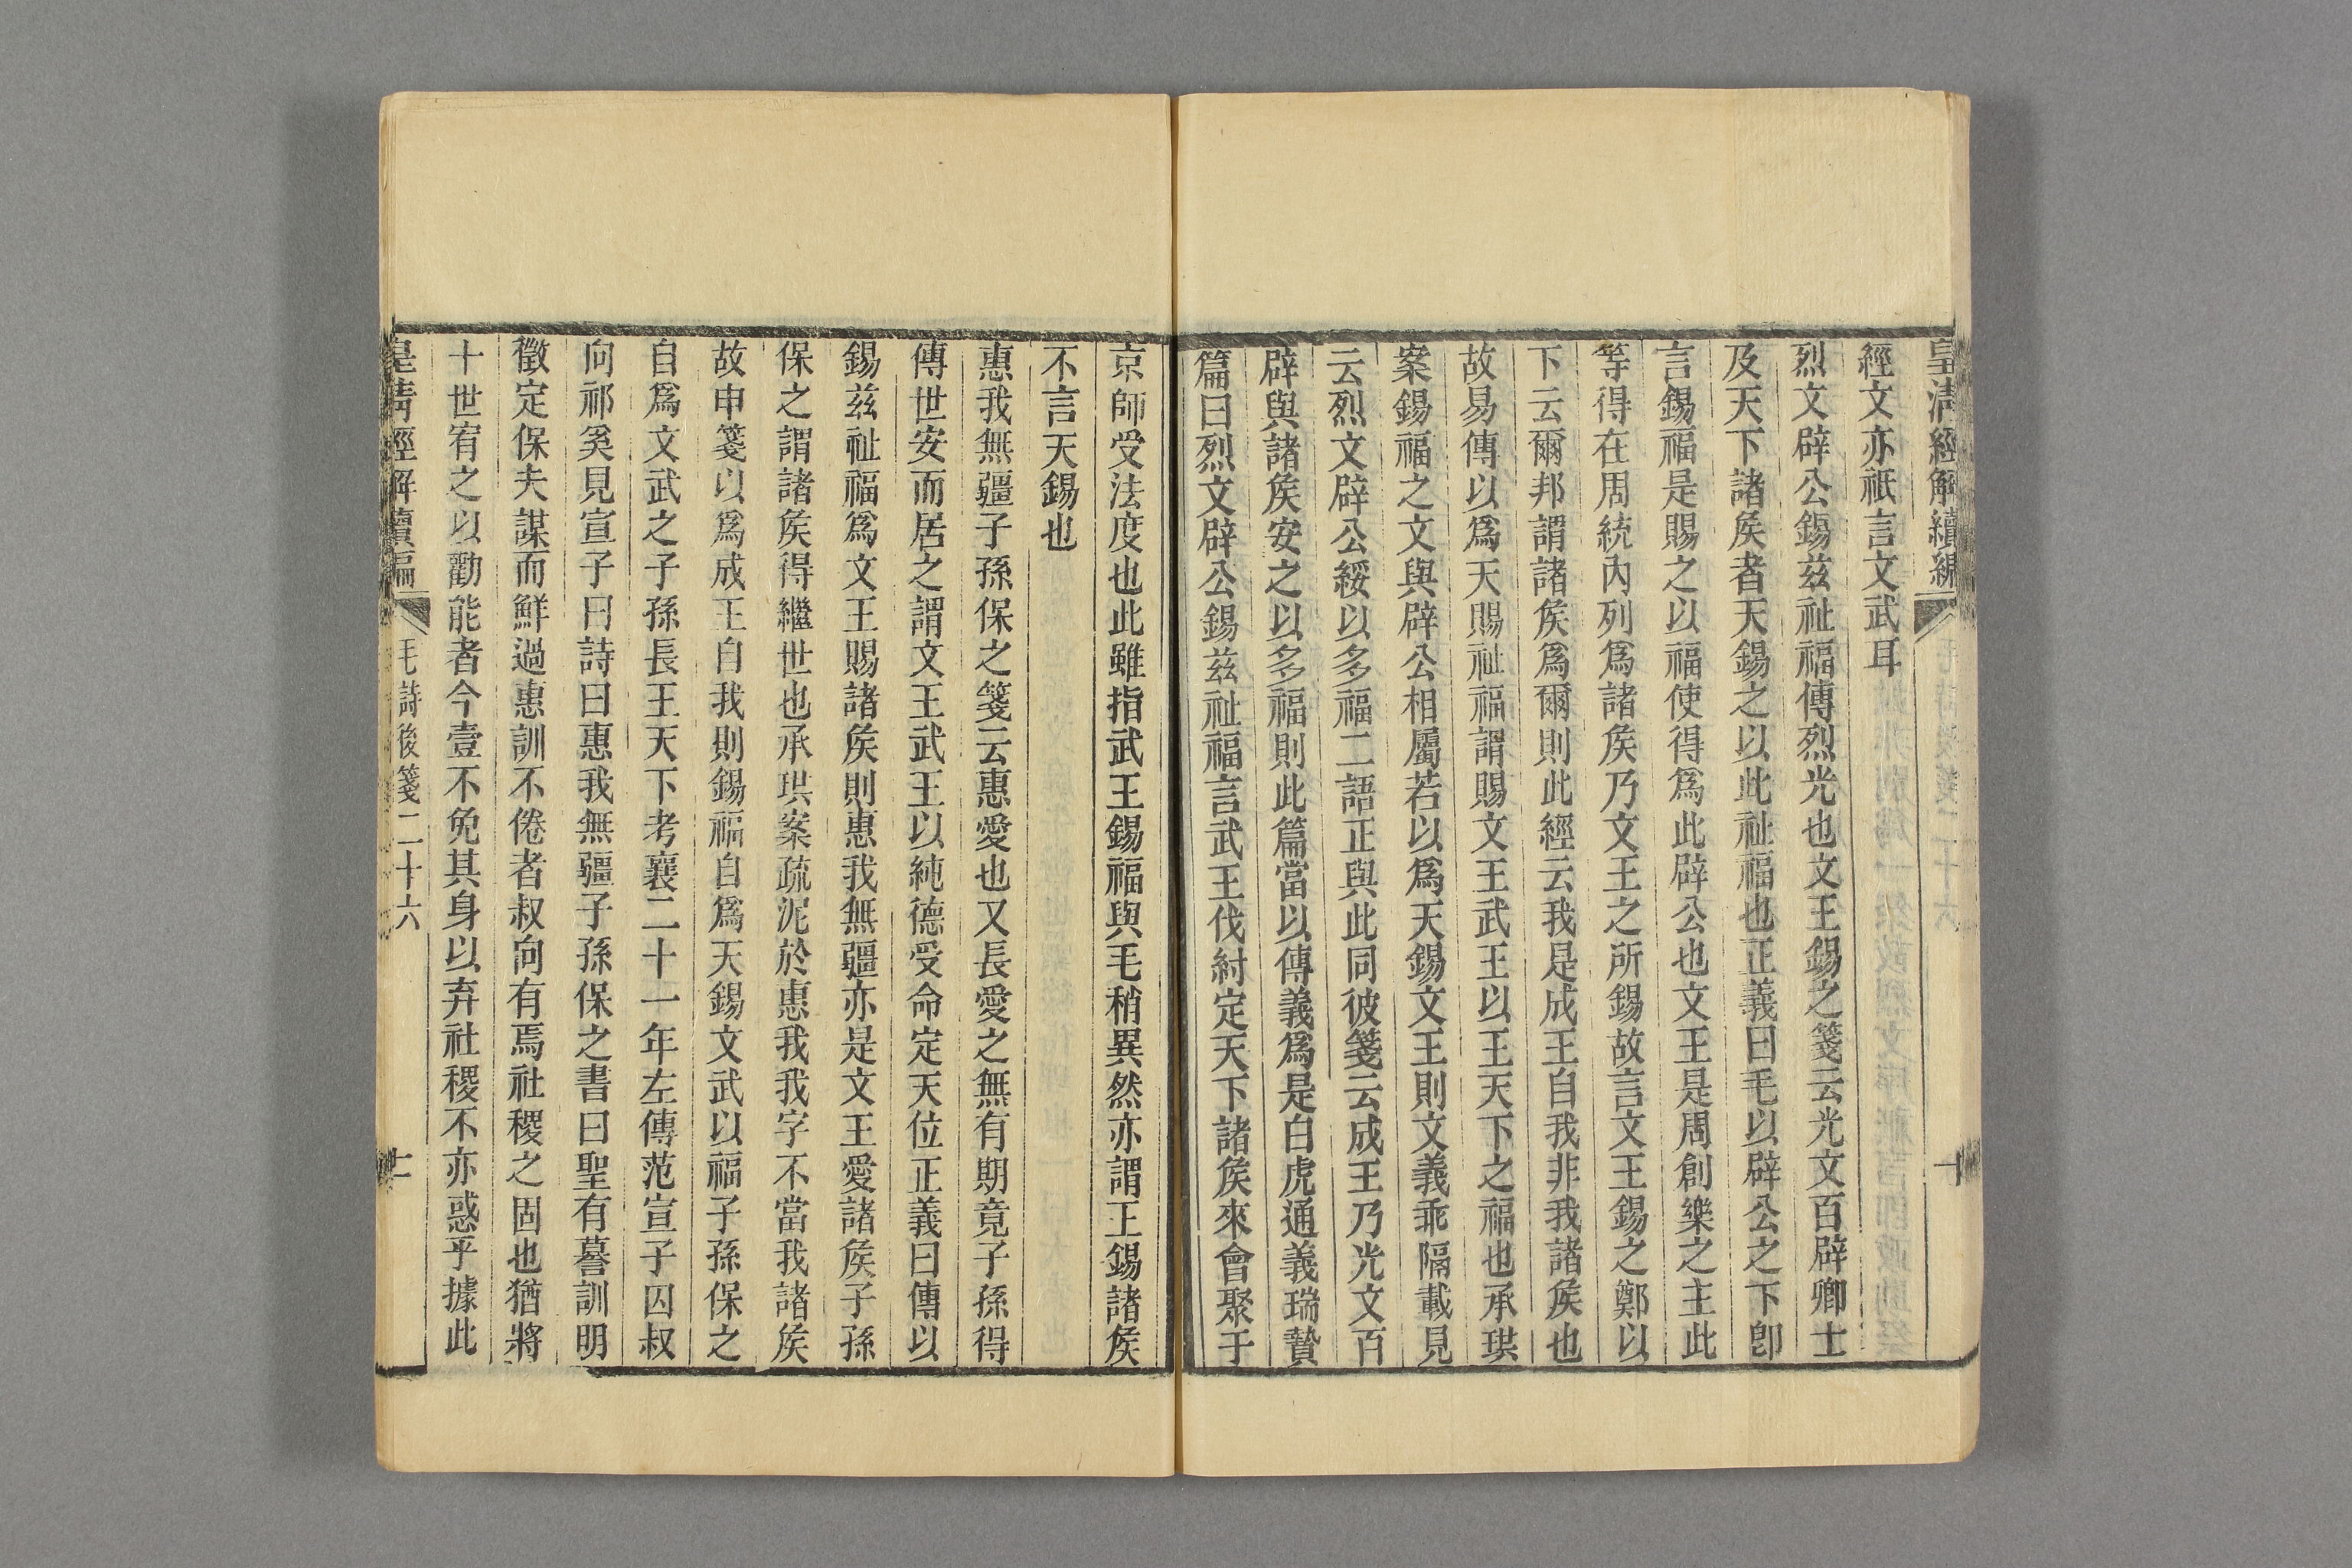 皇清經解續編
經文亦祇言文武耳
烈文辟公錫兹祉福傳烈光也文王錫之箋云光文百辟卿士
及天下諸矦者天錫之以此祉福也正義曰毛以辟公之下卽
言錫福是賜之以福使得爲此辟公也文王是周創樂之主此
等得在周統內列爲諸矦乃文王之所錫故言文王錫之鄭以
下云爾邦謂諸矦爲爾則此經云我是成王自我非我諸矦也
故易傳以爲天賜祉福謂賜文王武王以王天下之福也承珙
案錫福之文與辟公相屬若以爲天錫文王則文義乖隔載見
云烈文辟公綏以多福二語正與此同彼箋云成王乃光文百
辟與諸矦安之以多福則此篇當以傳義爲是白虎通義瑞贄
篇曰烈文辟公錫兹祉福言武王伐紂定天下諸矦來會聚于
京師受法度也此雖指武王錫福與毛稍異然亦謂王錫諸矦
不言天錫也
惠我無疆子孫保之箋云惠愛也又長愛之無有期竟子孫得
傳世安而居之謂文王武王以純德受命定天位正義曰傳以
錫兹祉福爲文王賜諸矦則惠我無疆亦是文王愛諸矦子孫
保之謂諸矦得繼世也承珙案疏泥於惠我我字不當我諸矦
故申箋以爲成王自我則錫福自爲天錫文武以福子孫保之
自爲文武之子孫長王天下考襄二十一年左傳范宣子囚叔
向祁奚見宣子曰詩曰惠我無疆子孫保之書曰聖有謩訓明
徵定保夫謀而鮮過惠訓不倦者叔向有焉社稷之固也猶將
十世宥之以勸能者今壹不免其身以弃社稷不亦惑乎據此
皇清經解續編 毛詩後箋二十六